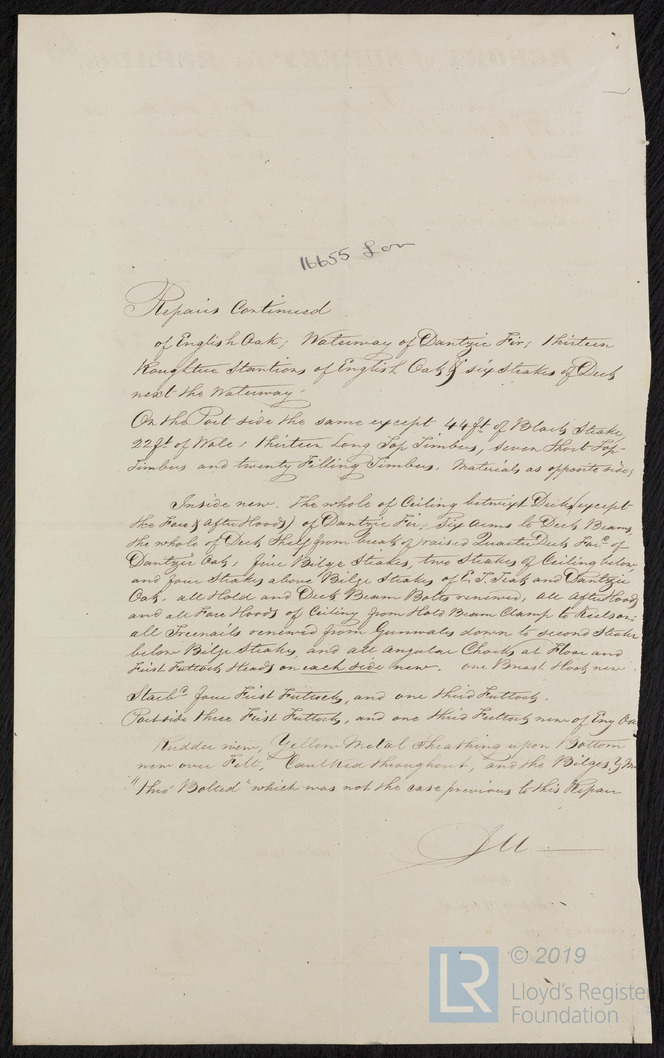 16655 Lon
Repairs Continued
of English Oak; Waterway of Dantzic Fir; thirteen
Roughtree Stantions of English Oak & six Strakes of Deck
next the Waterway.
On the Port side the same except 44 ft of Black Strake,
22 ft of Wale, thirteen Long Top Timbers, seven Short Top-
Timbers and twenty Filling Timbers. Materials as opposite side;
Inside new. The whole of Ceiling betwixt Decks (except
the Fore & After Hoods) of Dantzic Fir, Six arms to Deck Beams,
the whole of Deck Shelf from break of raised Quarter Deck For'd of
Dantzic Oak, five Bilge Strakes, two Strakes of Ceiling below
and four Strakes above Bilge Strakes of E. I. Teak and Dantzic
Oak. all Hold and Deck Beam Bolts renewed, all After Hoods
and all Fore Hoods of Ceiling from Hold Beam Clamp to Keelson,
all Treenails renewed from Gunwales down to second Strake
below Bilge Strakes, and all Angular Chocks at Floor and
First Futtock Heads on each side new. one Breast Hook new
Starb'd four First Futtocks, and one third Futtock.
Port side three First Futtocks, and one third Futtock new of Eng Oak
Rudder new, Yellow Metal Sheathing upon Bottom
new over Felt, Caulked throughout, and the Bilges Y M
"thro' Bolted" which was not the case previous to this Repair
© 2019
LR
Lloyd's Register
Foundation